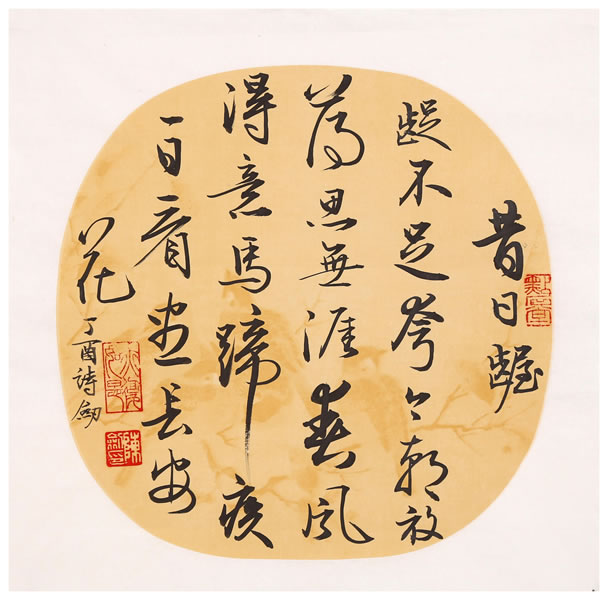 昔日齷
齪不足夸今朝放
蕩思無涯春風
得意馬蹄疾
一日看盡長安
花
丁酉詩劍